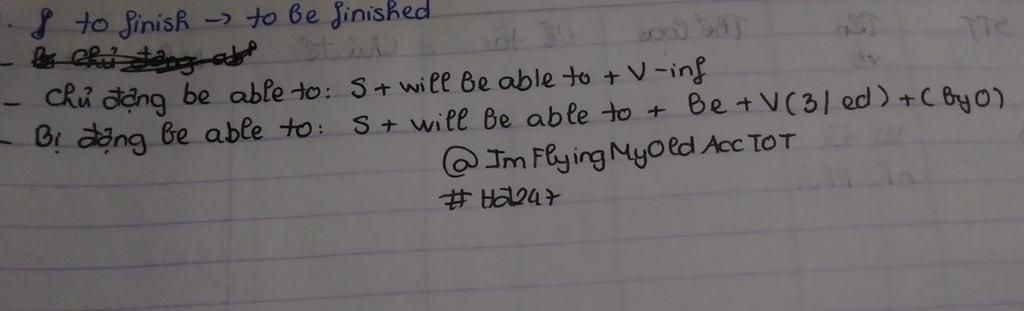 . f to finish -> to be finished
-
- Chủ động be able to: S + will be able to + V-inf
- Bị động be able to: S + will be able to + be + V(3/ed) + (by O)
@ImFlyingMyOldAccTOT
#Hd247